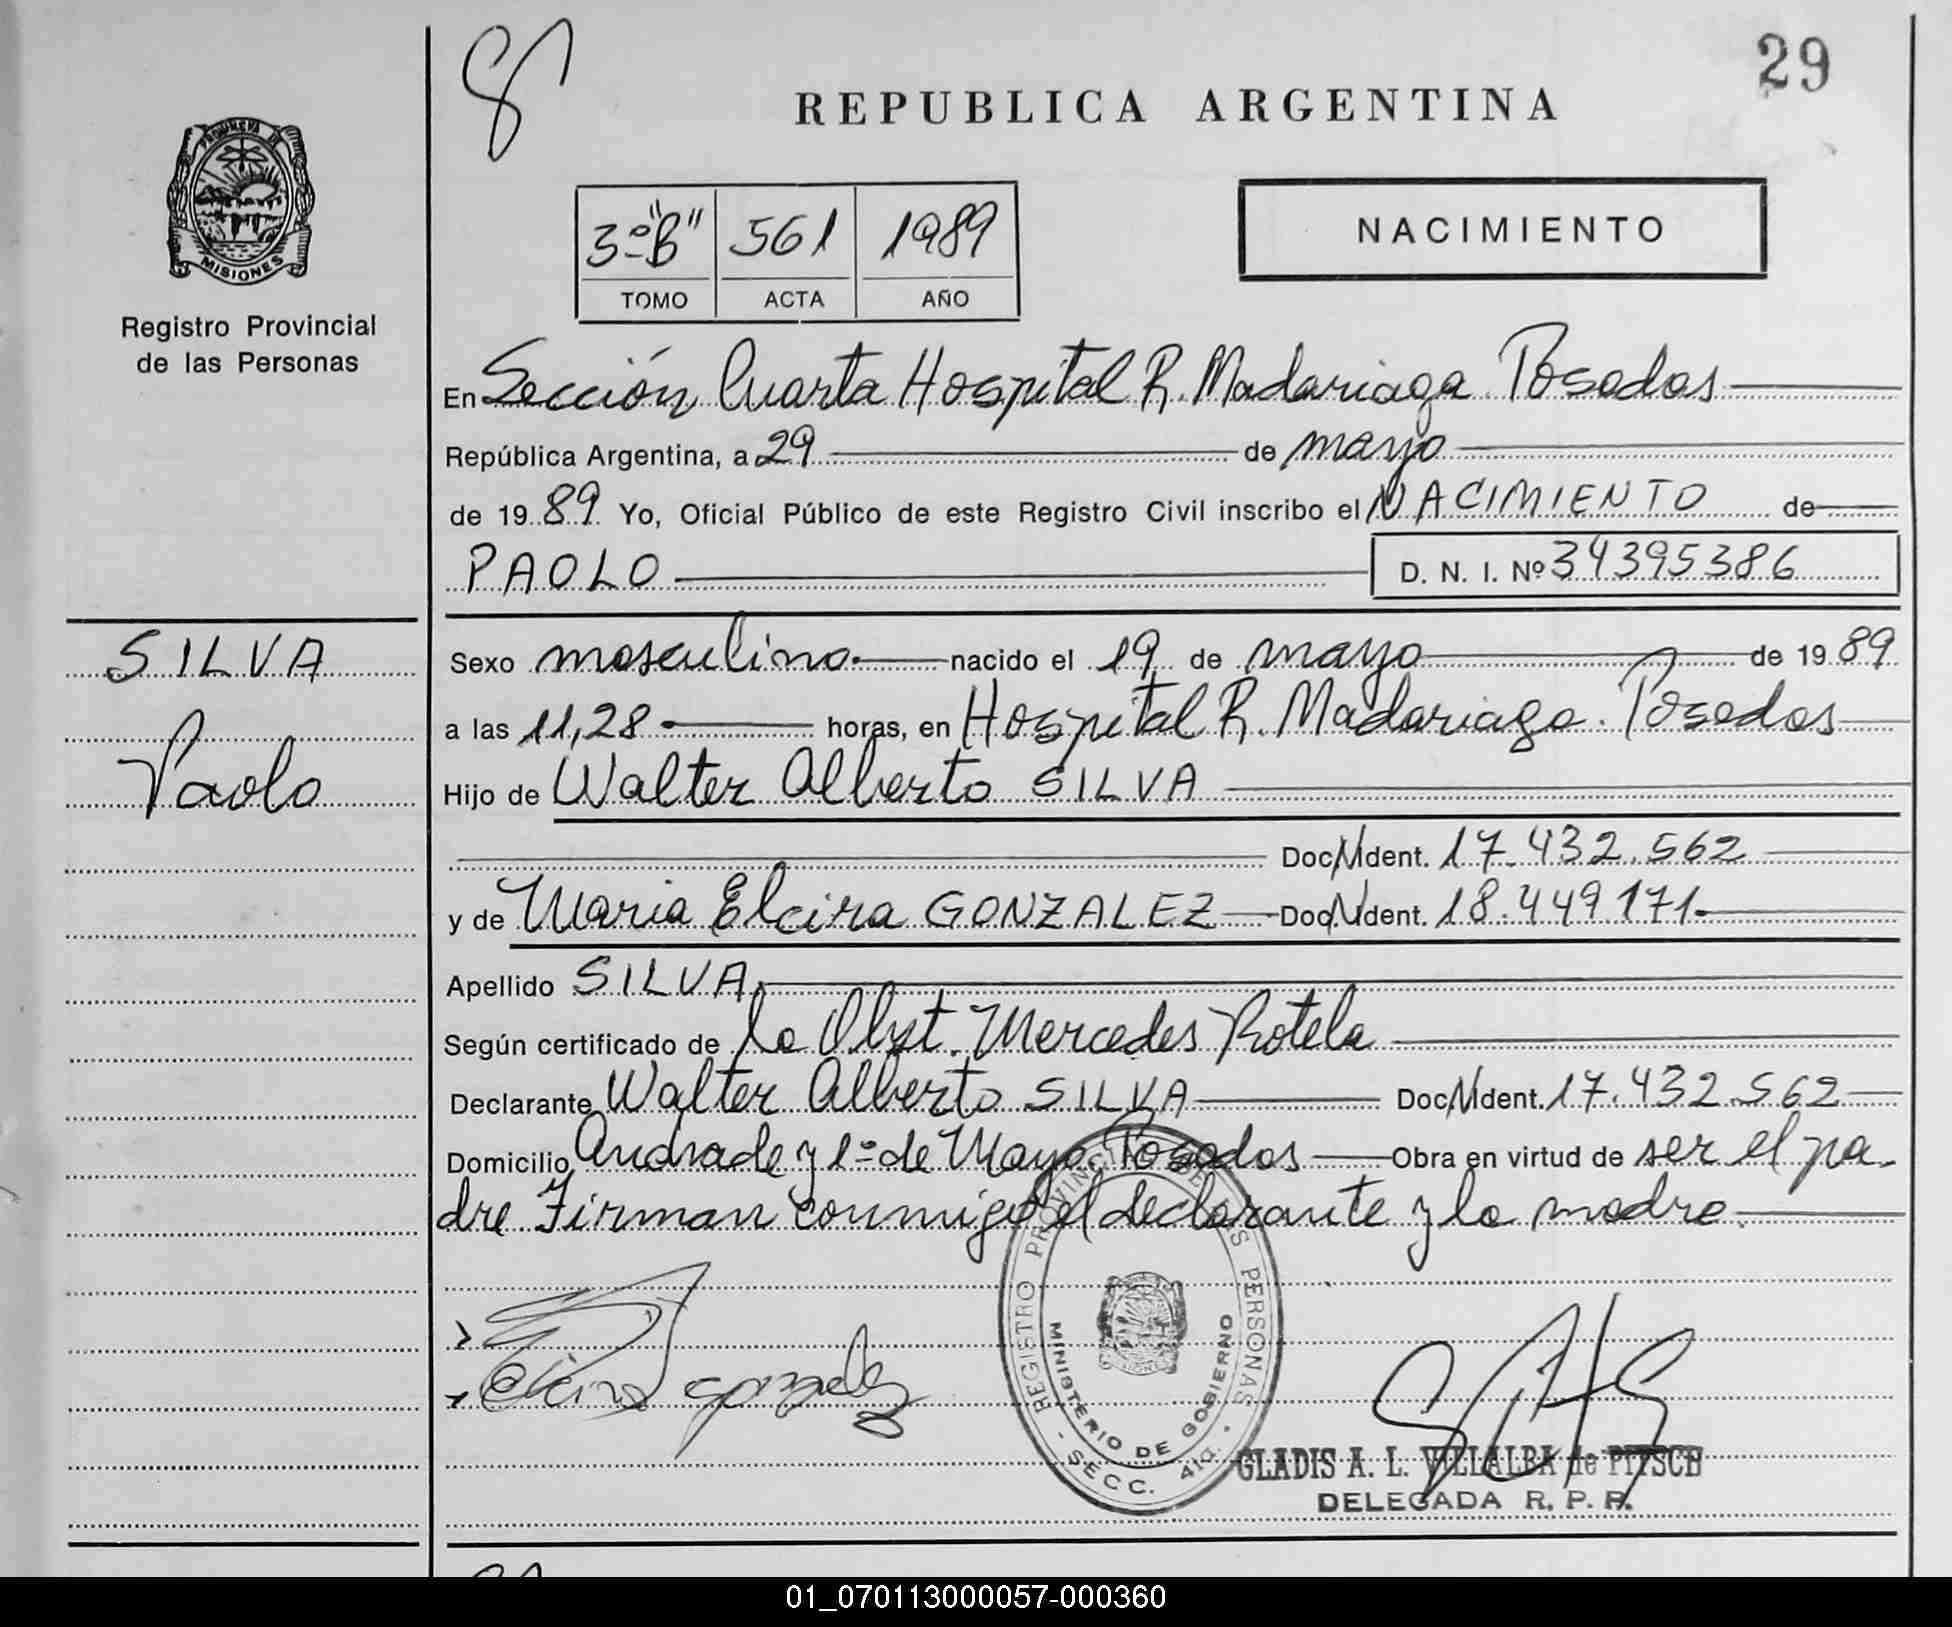 29
REPUBLICA ARGENTINA
PROVINCIA DE
MISIONES
Registro Provincial
de las Personas
3º "B" 561 1989
TOMO ACTA AÑO
NACIMIENTO
En Sección Cuarta Hospital R. Madariaga. Posadas
República Argentina, a 29 de mayo
de 1989 Yo, Oficial Público de este Registro Civil inscribo el NACIMIENTO de
PAOLO D. N. I. Nº 34395386
SILVA
Paolo
Sexo masculino. nacido el 19 de mayo de 1989
a las 11,28 horas, en Hospital R. Madariaga. Posadas
Hijo de Walter Alberto SILVA
Doc.N.Ident. 17.432.562
y de Maria Elcira GONZALEZ Doc.N.Ident. 18.449.171.
Apellido SILVA.
Según certificado de la Obst. Mercedes Rotela
Declarante Walter Alberto SILVA Doc.N.Ident. 17.432.562
Domicilio Andrade y 1º de Mayo Posadas Obra en virtud de ser el pa-
dre Firman conmigo el declarante y la madre.
Elcira gonzalez
REGISTRO PROVINCIAL DE LAS PERSONAS
MINISTERIO DE GOBIERNO
- SECC. 4ta. -
GLADIS A. L. VILLALBA de PITSCH
DELEGADA R. P. P.
01_070113000057-000360